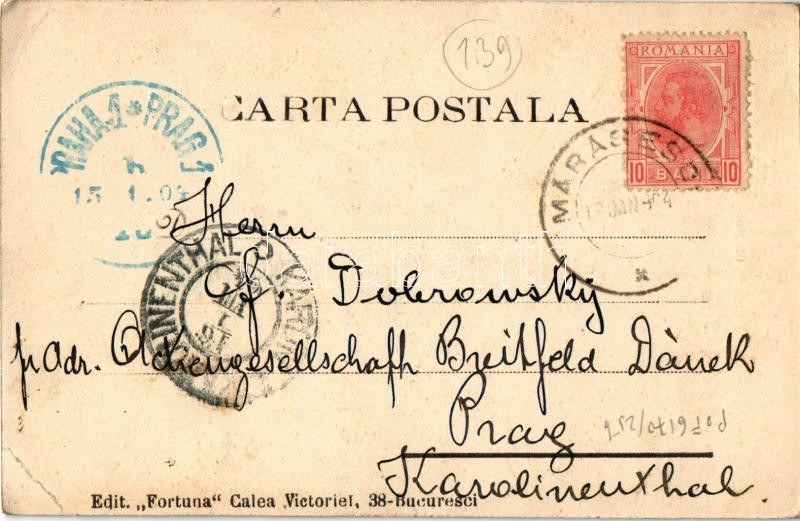 139
ROMANIA
CARTA POSTALA
10 BANI 10
PRAHA 1 * PRAG 1
15
MĂRĂSESCI
JAN
Herrn
Of. Dobrowský
KAROLINENTHAL
p Adr. Actiengesellschaft Breitfeld Dànek
Prag
Karolinenthal.
Edit. „Fortuna" Calea Victoriei, 38-Bucuresci